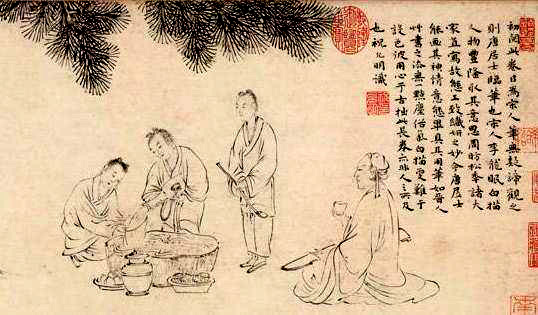 初閱此卷目為宋人筆無疑諦觀之
則唐居士臨筆也宋人李龍眠白描
人物豐隆永其意思周昉松年諸大
家直寫故態工致纖妍之妙今唐居士
能画其神情意態畢具且用筆如晋人
艸書之法無一點塵俗氣白描更難于
設色彼用心于古拙此長卷亦非人之所及
也祝允明識